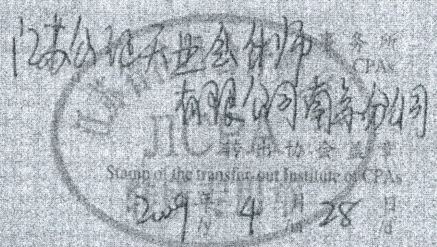 江苏公证天业会计师事务所
CPAs
有限公司南京分公司
JICPA
转出协会盖章
Stamp of the transfer-out Institute of CPAs
2009 年 4 月 28 日
/y /m /d